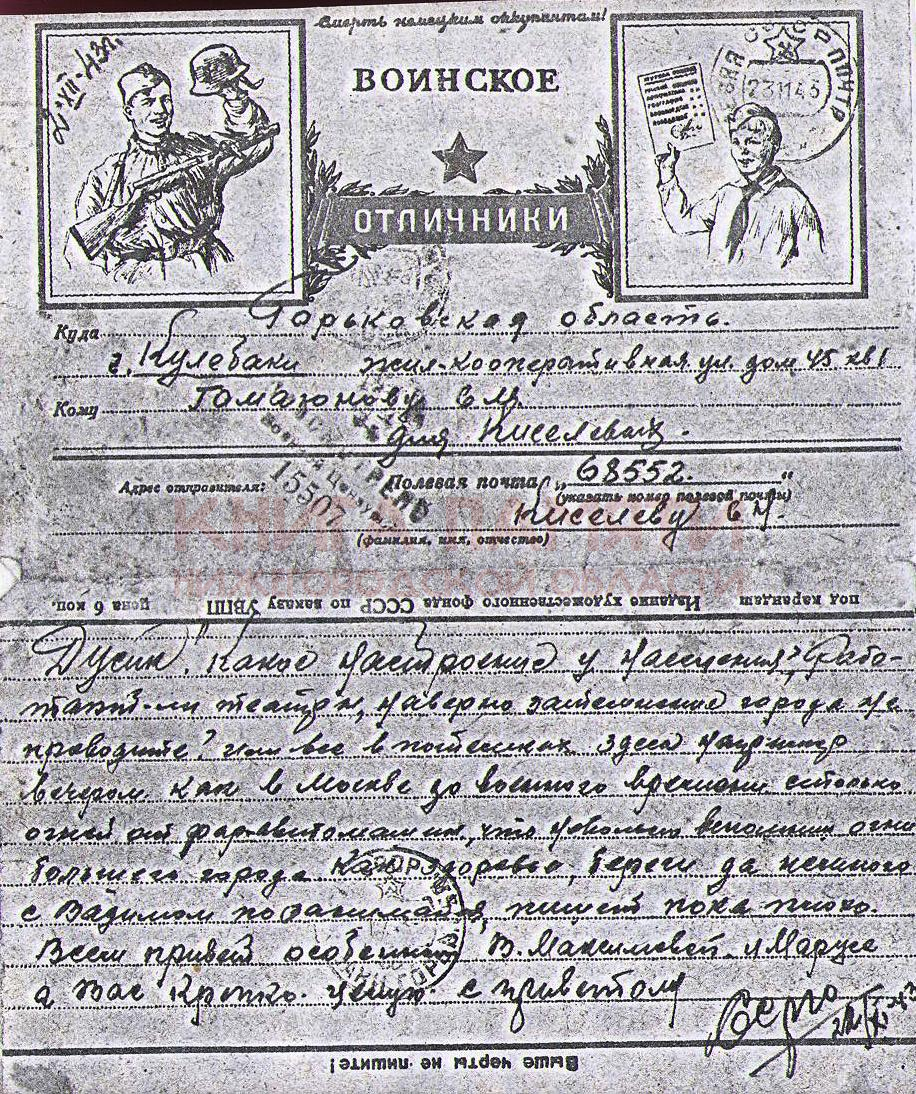 Смерть немецким оккупантам!
ВОИНСКОЕ
ОТЛИЧНИКИ
2 VII-43г.
231143
Куда Горьковская область.
г. Кулебаки жил-кооперативная ул. дом 45 кв 1
Кому Гамазонову
для Киселевых.
15507
Адрес отправителя: Полевая почта „68552.“
(указать номер полевой почты)
Киселеву
(фамилия, имя, отчество)
КНИГА ПАМЯТИ
НИЖЕГОРОДСКОЙ ОБЛАСТИ
под карандаш Издание художественного фонда СССР по заказу УВПП цена 6 коп.
Дусик! Какое настроение у населения? Рабо-
тают-ли театры, наверно затемнение города не
проводите? или все в потемках здесь например
вечером как в Москве до военного времени столько
огней от фар автомашин, что невольно вспомнишь огни
большего города здоровье, береги да немного
с Вадимом позанимайся, пишет пока плохо.
Всем привет особенно В. Максимовой и Марусе
а Вас крепко целую с приветом
Выше черты не пишите!